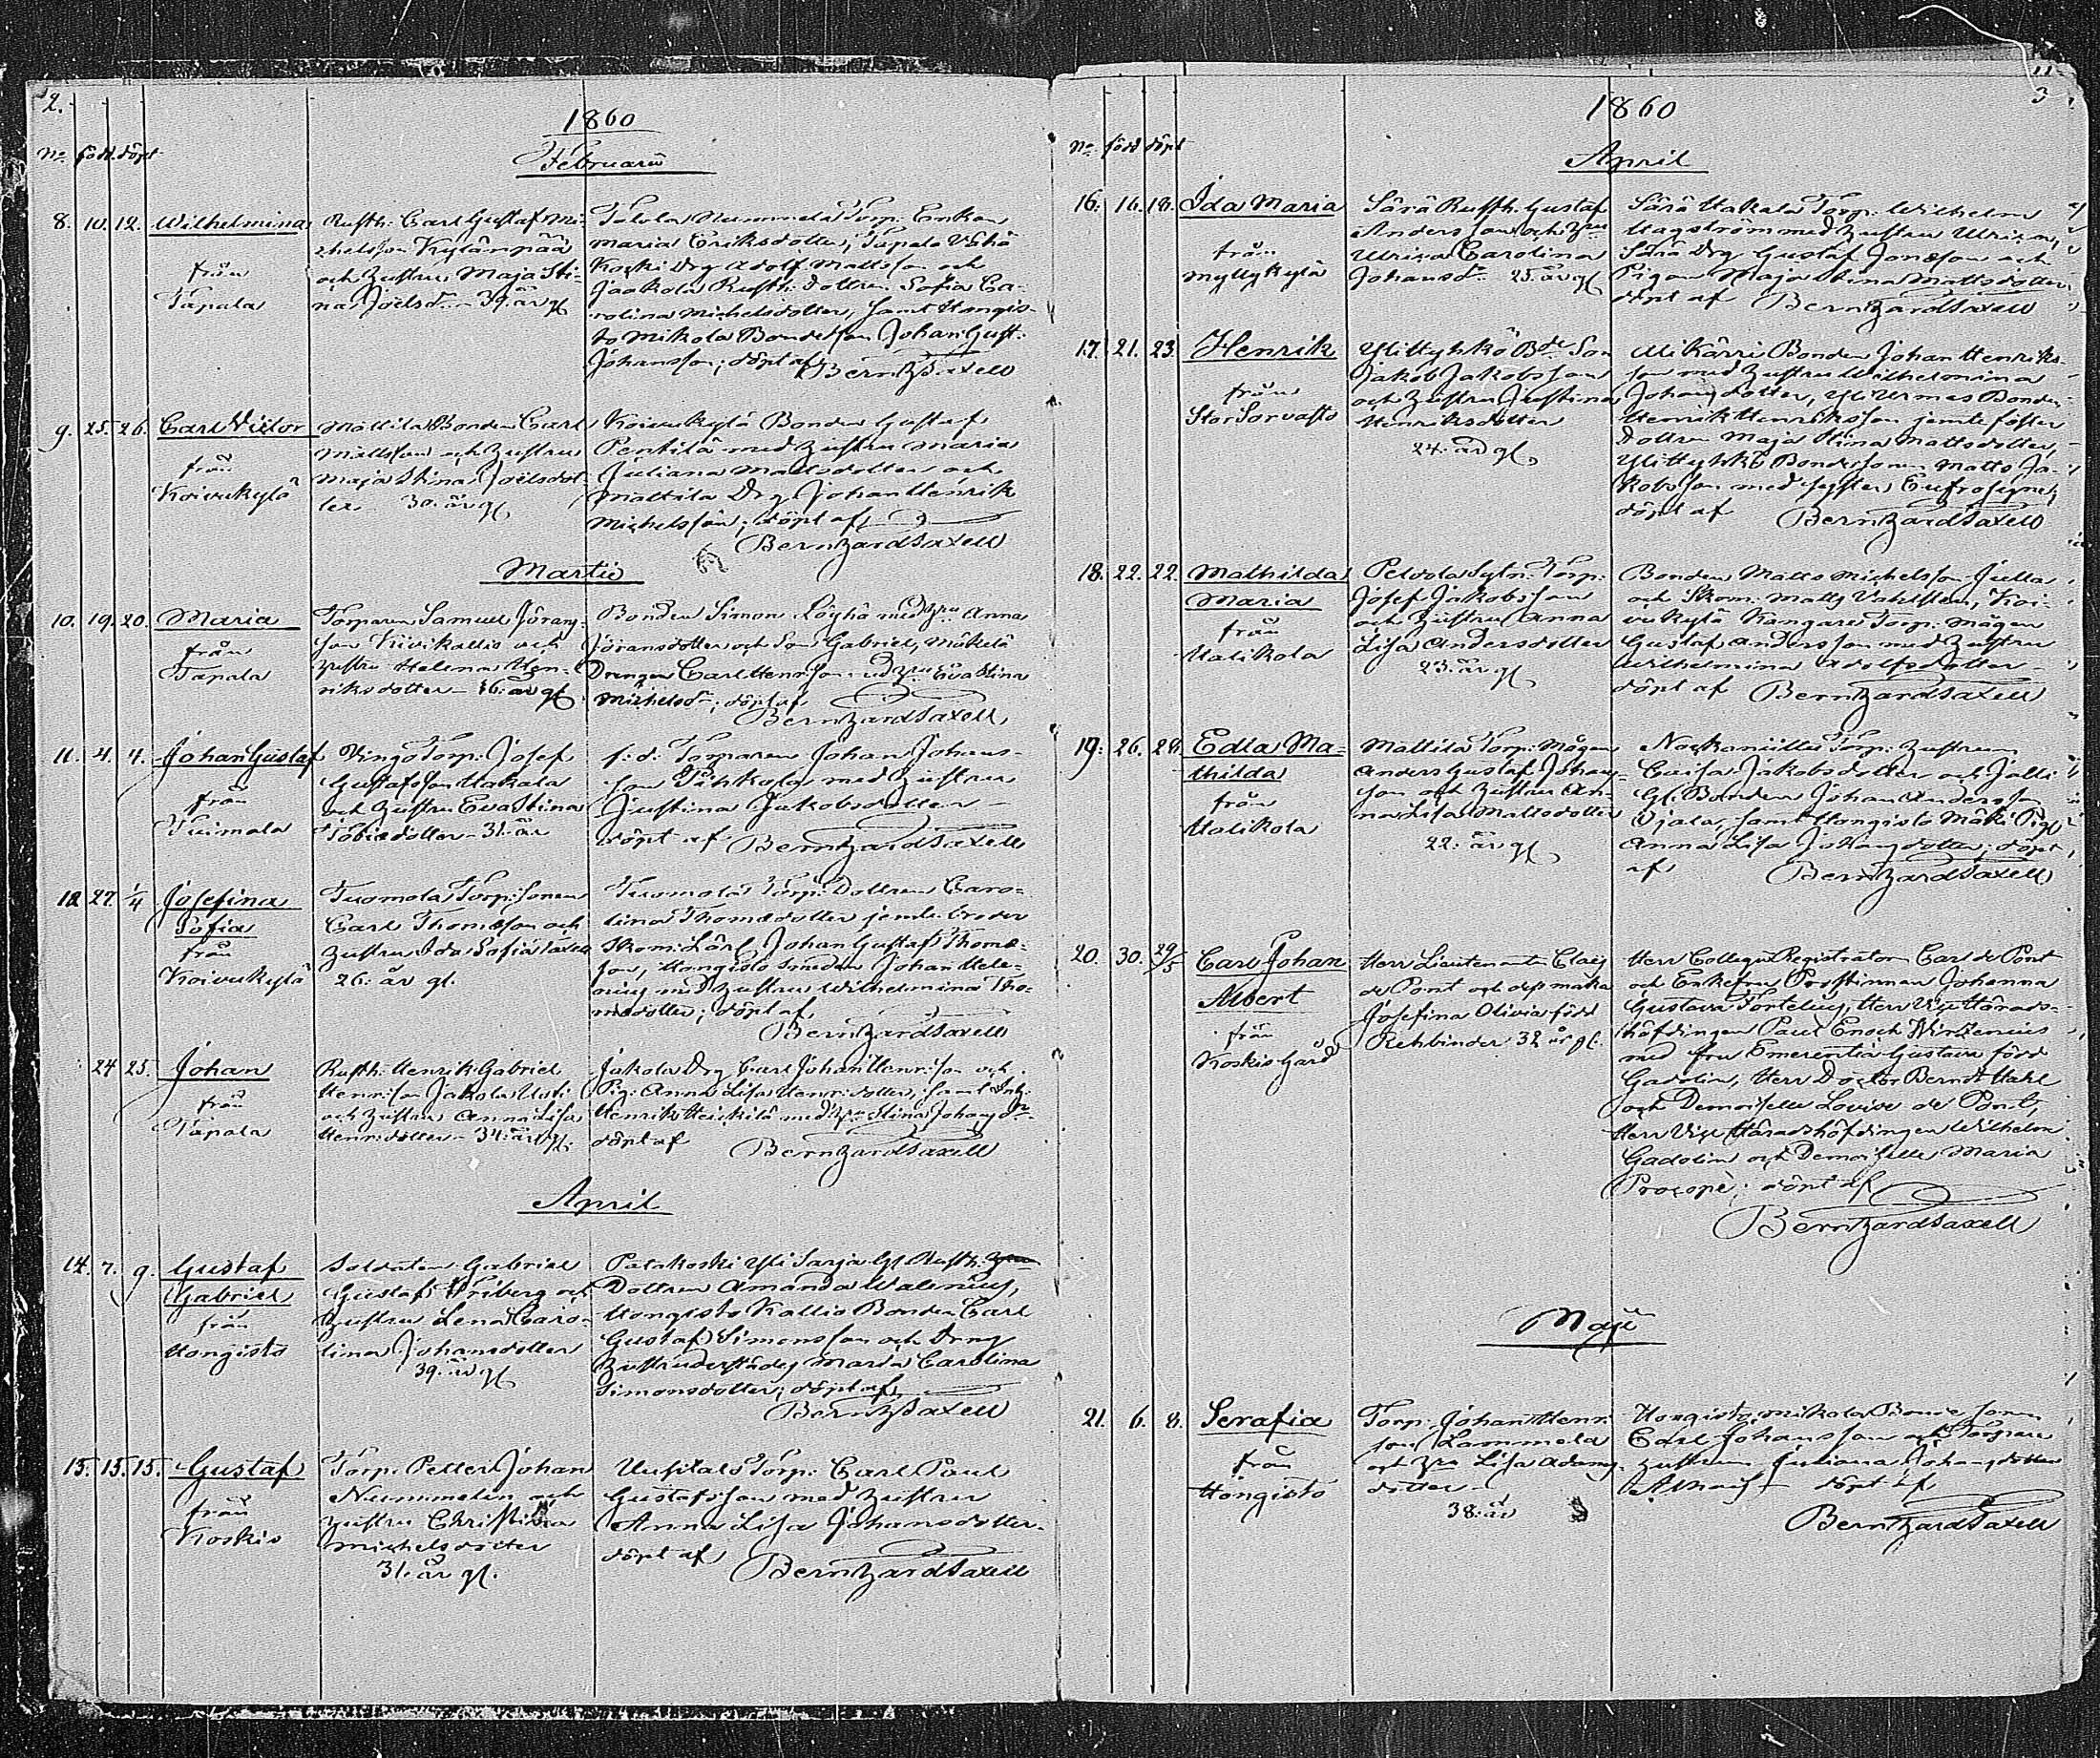 2.
1860
No. född. döpt
Februarii
8. 10. 12. Wilhelmina
från
Tapala
Rusth. Carl Gustaf Mi-
chelsson Kylänpää
och hustru Maja Sti-
na Joelsd. 39. år gl.
Torp. Enkan
Maria Eriksdotter, Tapala Vähä
Koski Drg Adolf Mattsson och
Jaakola Rusth. dottren Sofia Ca-
rolina Michelsdotter, samt Hongis-
to Mikola Bondeson Johan Gust.
Johansson; döpt af
Bernh. Saxell
9. 25. 26. Carl Victor
från
Koivukylä
Mattila Bonden Carl
Mattsson och hustru
Maja Stina Joelsdot-
ter 30. år gl.
Koivukylä Bonden Gustaf
Pentilä med hustru Maria
Juliana Mattsdotter och
Mattila Drg. Johan Henrik
Michelsson; döpt af
Bernhard Saxell
Martii
10. 19. 20. Maria
från
Tapala
Torparen Samuel Göran-
son Kivikallio och
hustru Helena Hen-
riksdotter 36. år gl.
Bonden Simon Löyhä med Hru Anna
Göransdotter och Son Gabriel, Mäkelä
Drengen Carl Henr:son med Hru Eva Stina
Michelsd.; döpt af
Bernhard Saxell
11. 4. 4. Johan Gustaf
från
Tuimala
Vingo Torp. Josef
Gustafsson Hakala
och hustru Eva Stina
Tobiasdotter 31. år
f:d: Torparen Johan Johans-
son Pihkola med hustru
Justina Jakobsdotter
döpt af Bernhard Saxell
12. 27. 1/4 Josefina
Sofia
från
Koivukylä
Tuomola Torp: sonen
Carl Thomasson och
hustru Ida Sofia Saxell
26. år gl.
Tuomola Torp. Dottren Caro-
lina Thomasdotter jemte broder
Skom: Lärl. Johan Gustaf Thomas-
son, Hongisto Smeden Johan Hele-
nius med hustru Wilhelmina Tho-
masdotter; döpt af
Bernhard Saxell
24 25. Johan
från
Tapala
Rusth. Henrik Gabriel
Henr:son Jakola Uoti
och hustru Anna Lisa
Henr:dotter 34. år gl.
Jakola Drg Carl Johan Henr:son och
Pig. Anna Lisa Henr:dotter, samt Inh.
Henrik Heikilä med Hru Stina Johansdr.
döpt af Bernhard Saxell
April
14. 7. 9. Gustaf
Gabriel
från
Hongisto
Soldaten Gabriel
Gustafs: Friberg och
hustru Lena Caro-
lina Johansdotter
39. år gl.
Palakoski Yli Sarja Gl. Rusth.
Dottren Amanda Walenius,
Hongisto Kallio Bonden Carl
Gustaf Simonsson och Dreng
hustru derstädes Maria Carolina
Simonsdotter; döpt af
Bernh. Saxell
15. 15. 15. Gustaf
från
Koskis
Torp. Petter Johan
Nummelin och
hustru Christina
Michelsdotter
31. år gl.
Uusitalo Torp: Carl Paul
Gustafsson med hustru
Anna Lisa Johansdotter.
döpt af
Bernhard Saxell
11
3
1860
No. född döpt
April
16. 16. 18. Ida Maria
från
Myllykylä
Särä Rusth. Gustaf
Andersson och Hru
Ulrica Carolina
Johansdr. 25. år gl.
Särä Hakala Torp: Wilhelm
Hagström med hustru Ulrica,
Särä Drg Gustaf Jonasson och
Pigan Maja Stina Mattsdotter,
döpt af Bernhard Saxell
17. 21. 23. Henrik
från
Stor Sorvasto
Ylittyhkö Bde Son
Jakob Jakobsson
och hustru Justina
Henriksdotter
24. år gl.
Alikärri Bonden Johan Henriks-
son med hustru Wilhelmina
Johansdotter, Bonden
Henrik Henriksson jemte foster
Dottren Maja Stina Mattsdotter,
Ylittyhkö Bondesonen Matts Ja-
kobsson med syster Eufrosyne;
döpt af Bernhard Saxell
18. 22. 22. Mathilda
Maria
från
Halikola
Peldola Sytn: Torp:
Josef Jakobsson
och hustru Anna
Lisa Andersdotter
23. år gl.
Bonden Matts Michelsson Julla
och Skom. Matts Vahlsten, Koi-
vukylä Kangare Torp: mågen
Gustaf Andersson med hustru
Wilhelmina Adolfsdotter
döpt af Bernhard Saxell
19. 26. 28. Edla Ma-
thilda
från
Halikola
Mattila Torp: mågen
Anders Gustaf Johans-
son och hustru An-
na Lisa Mattsdotter
22. år gl.
Torp: hustrun
Caisa Jakobsdotter och Jalli
Gl: Bonden Johan Andersson
Ojala, samt Hongisto Mäki Pig.
Anna Lisa Johansdotter; döpt
af Bernhard Saxell
20. 30. 29/5 Carl Johan
Albert
från
Koskis Gård
Herr Lieutenanten Claes
de Pont och dess maka
Josefina Olivia född
Rehbinder 32 år gl.
Herr Collegii Registratorn Carl de Pont
och Enkefru Prostinnan Johanna
Gustava Fortelius, Herr Vice Härads-
höfdingen Paul Enoch Winzenius
med fru Emerentia Gustava född
Gadolin, Herr Doctor Berndt Hahl
och Demoiselle Lovise de Pont,
Herr Vice Häradshöfdingen Wilhelm
Gadolin och Demoiselle Maria
Procopé; döpt af
Bernhard Saxell
Maji
21. 6. 8. Serafia
från
Hongisto
Torp. Johan Henr:
son Lammela
och Hru Lisa Adams-
dotter
38. år
Hongisto Mikola Bonde sonen
Carl Johansson och Torpare
hustrun Juliana Johansdotter
döpt af
Bernhard Saxell